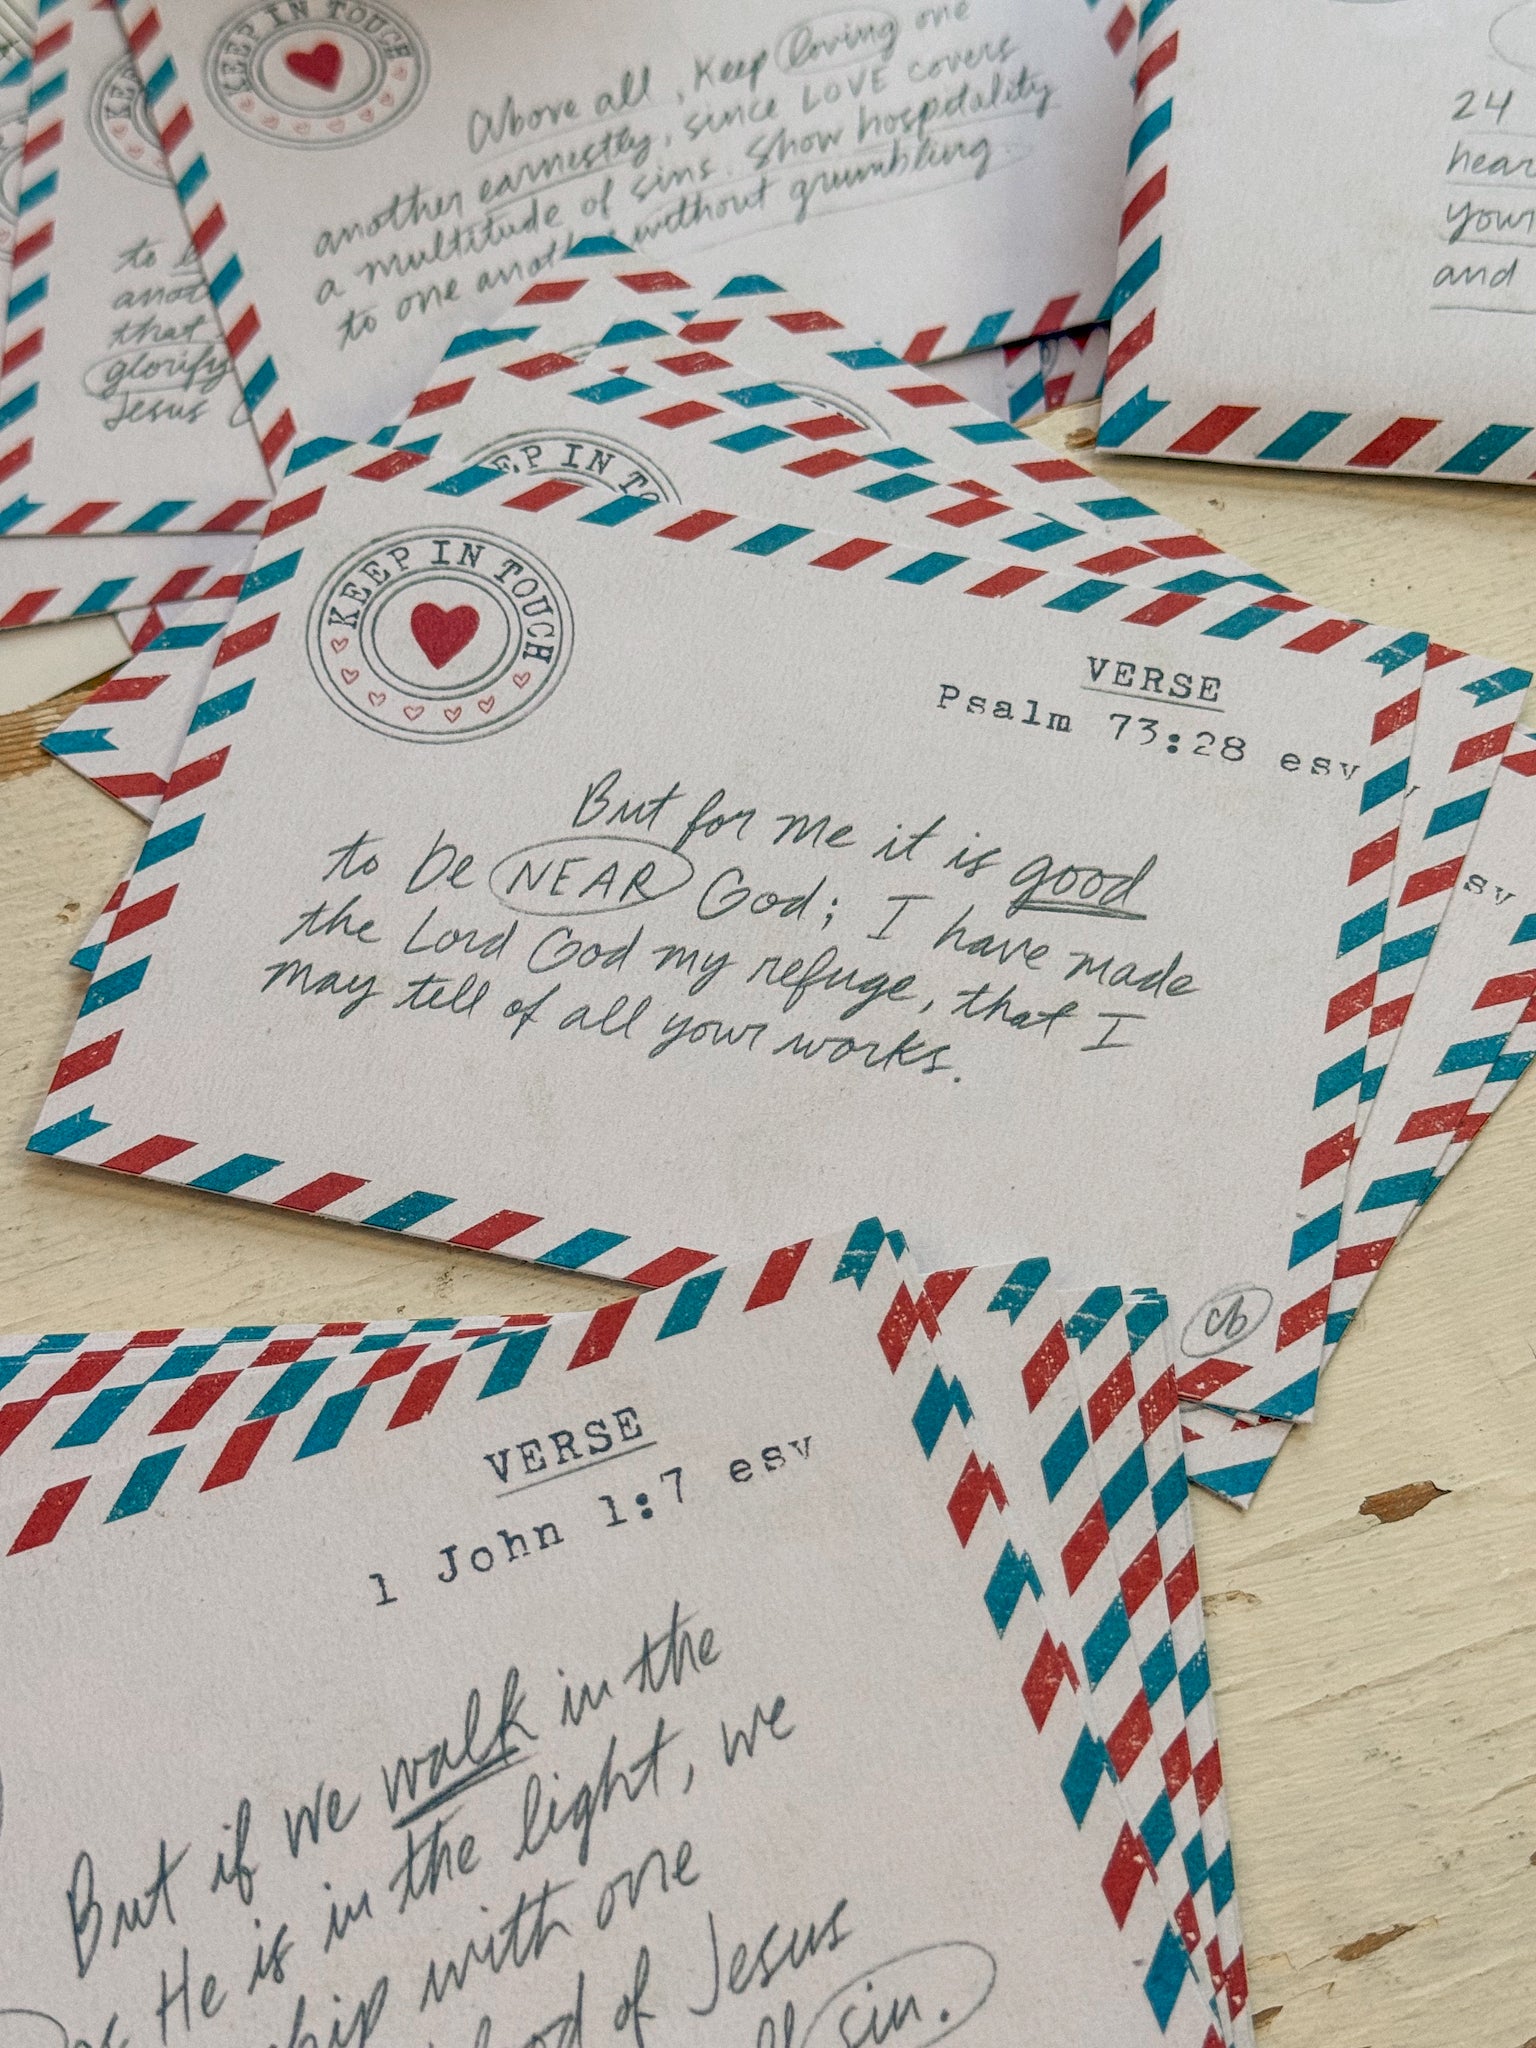 KEEP IN TOUCH
Above all, keep loving one
another earnestly, since LOVE covers
a multitude of sins. Show hospitality
to one another without grumbling.
to
anot
that
glorify
Jesus
24
hear
your
and
EP IN TO
KEEP IN TOUCH
VERSE
Psalm 73:28 esv
But for me it is good
to be NEAR God; I have made
the Lord God my refuge, that I
may tell of all your works.
cb
sv
VERSE
1 John 1:7 esv
But if we walk in the
as He is in the light, we
ship with one
od of Jesus
sin.